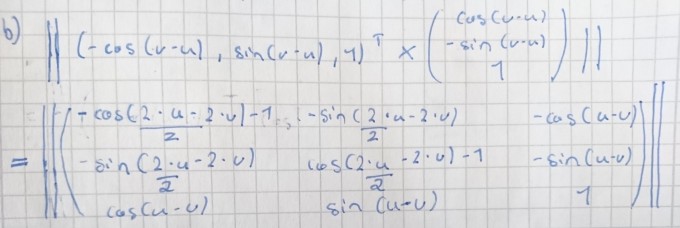 b) || (-cos(v-u), sin(v-u), 1)^T × ( cos(v-u)
-sin(v-u)
1 ) ||
= || ( (-cos(2·u-2·v)-1)/2 , (-sin(2·u-2·v))/2 -cos(u-v)
(-sin(2·u-2·v))/2 (cos(2·u-2·v)-1)/2 -sin(u-v)
cos(u-v) sin(u-v) 1 ) ||